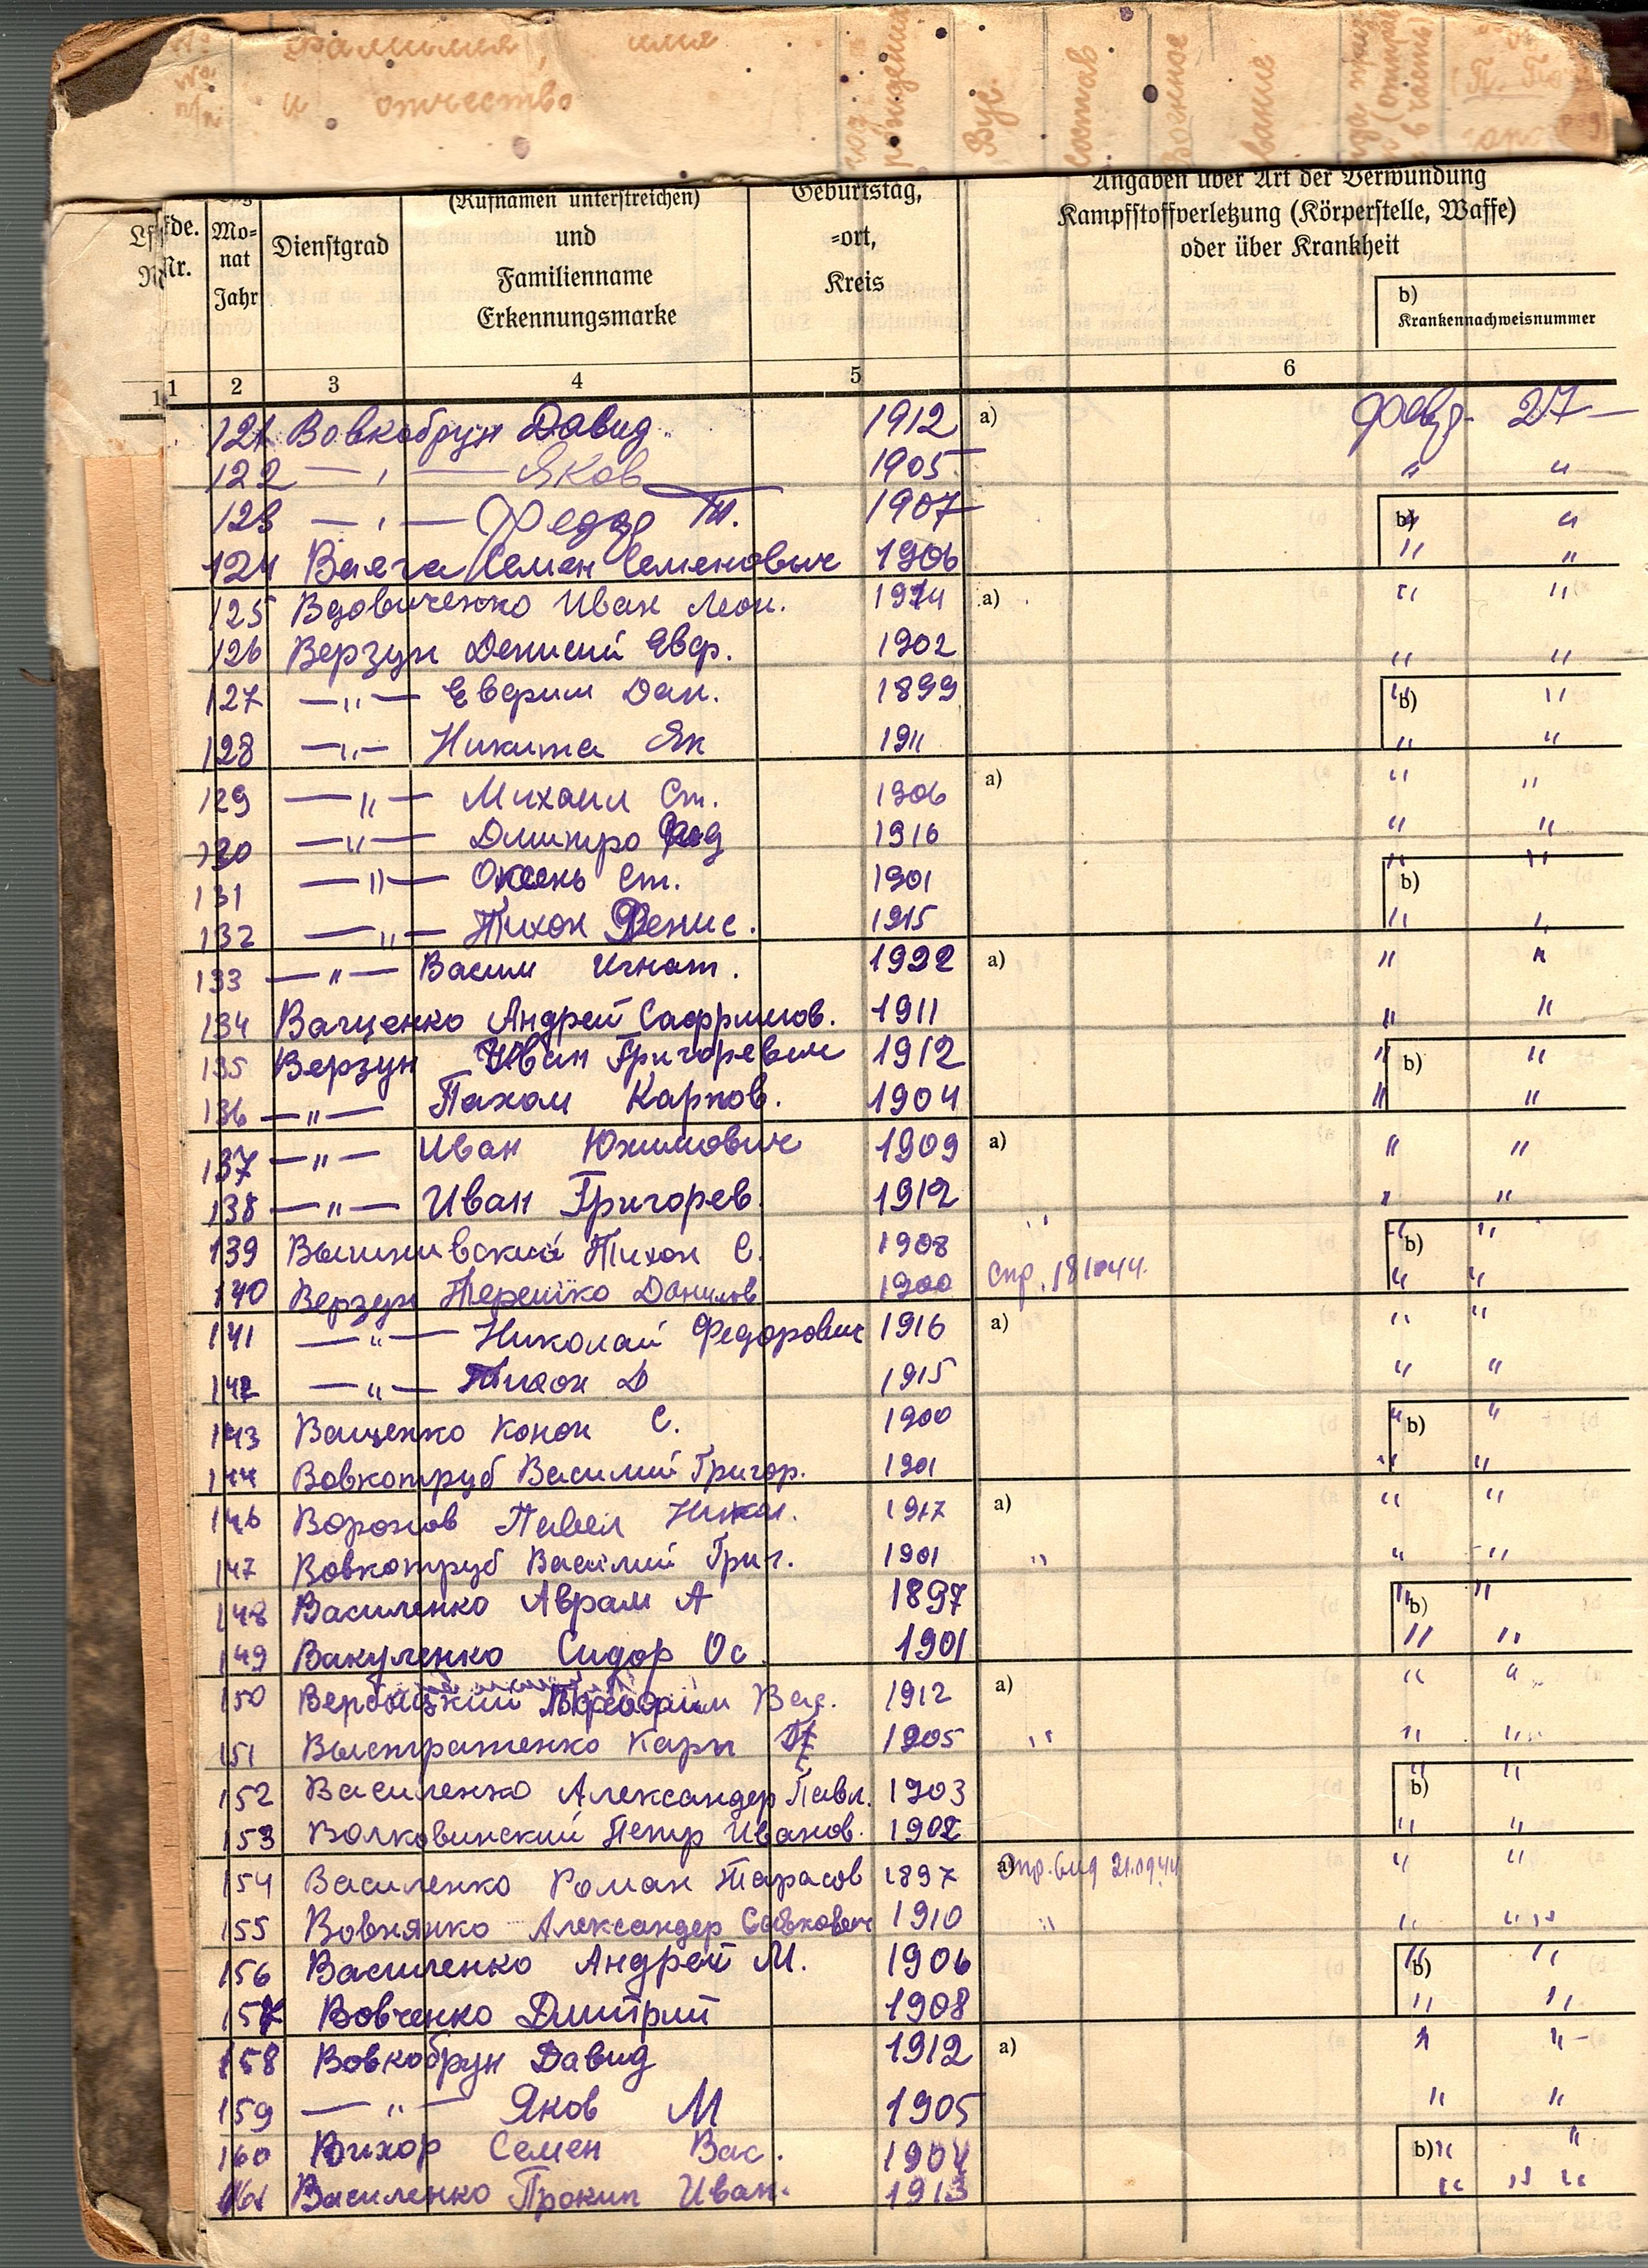 фамилия, имя
и отчество
рождения
Вус.
состав
звание
(Rufnamen unterstreichen)
und
Familienname
Erkennungsmarke
Mo-
nat
Jahr
Dienstgrad
Geburtstag,
-ort,
Kreis
Angaben über Art der Verwundung
Kampfstoffverletzung (Körperstelle, Waffe)
oder über Krankheit
b)
Krankennachweisnummer
1 2 3 4 5 6
121 Вовкобрун Давид 1912 a) 27—
122 — " — Яков 1905 " "
123 — " — Федор Т. 1907 b) " "
124 Семен Семенович 1906 " "
125 Вдовиченко Иван Леон. 1914 a) " "
126 Верзун Денисий Евф. 1902 " "
127 — " — Евфрим Дан. 1899 b) " "
128 — " — Никита Як 1911 " "
129 — " — Михаил Ст. 1906 a) " "
130 — " — Дмитро 1916 " "
131 — " — Ст. 1901 b) " "
132 — " — Тихон Денис. 1915 " "
133 — " — Васил Игнат. 1922 a) " "
134 Ващенко Андрей 1911 " "
135 Верзун Иван Григоревич 1912 b) " "
136 — " — Пахом Карпов. 1904 " "
137 — " — Иван Юхимович 1909 a) " "
138 — " — Иван Григорев. 1912 " "
139 Вышнивский Тихон С. 1908 " b) " "
140 Верзун Терешко Данилов 1900 " "
141 — " — Николай Федорович 1916 a) " "
142 — " — Тихон Д 1915 " "
143 Ващенко Конон С. 1900 b) " "
144 Вовкотруб Василий Григор. 1901 " "
146 Воронов Павел Никол. 1917 a) " "
147 Вовкотруб Василий Григ. 1901 " " "
148 Василенко Аврам А 1897 b) " "
149 Вакуленко Сидор Ос. 1901 " "
150 Вербицкий Вас. 1912 a) " "
151 Карп 1905 " " "
152 Василенко Александер Павл. 1903 b) " "
153 Волковинский Петр Иванов. 1902 " "
154 Василенко Роман Тарасов 1897 a) " "
155 Вовнянко Александер Савкович 1910 " " "
156 Василенко Андрей М. 1906 b) " "
157 Вовченко Дмитрий 1908 " "
158 Вовкобрун Давид 1912 a) " " —
159 — " — Яков М 1905 " "
160 Вихор Семен Вас. 1904 b) " "
161 Василенко Прокип Иван. 1913 " " "